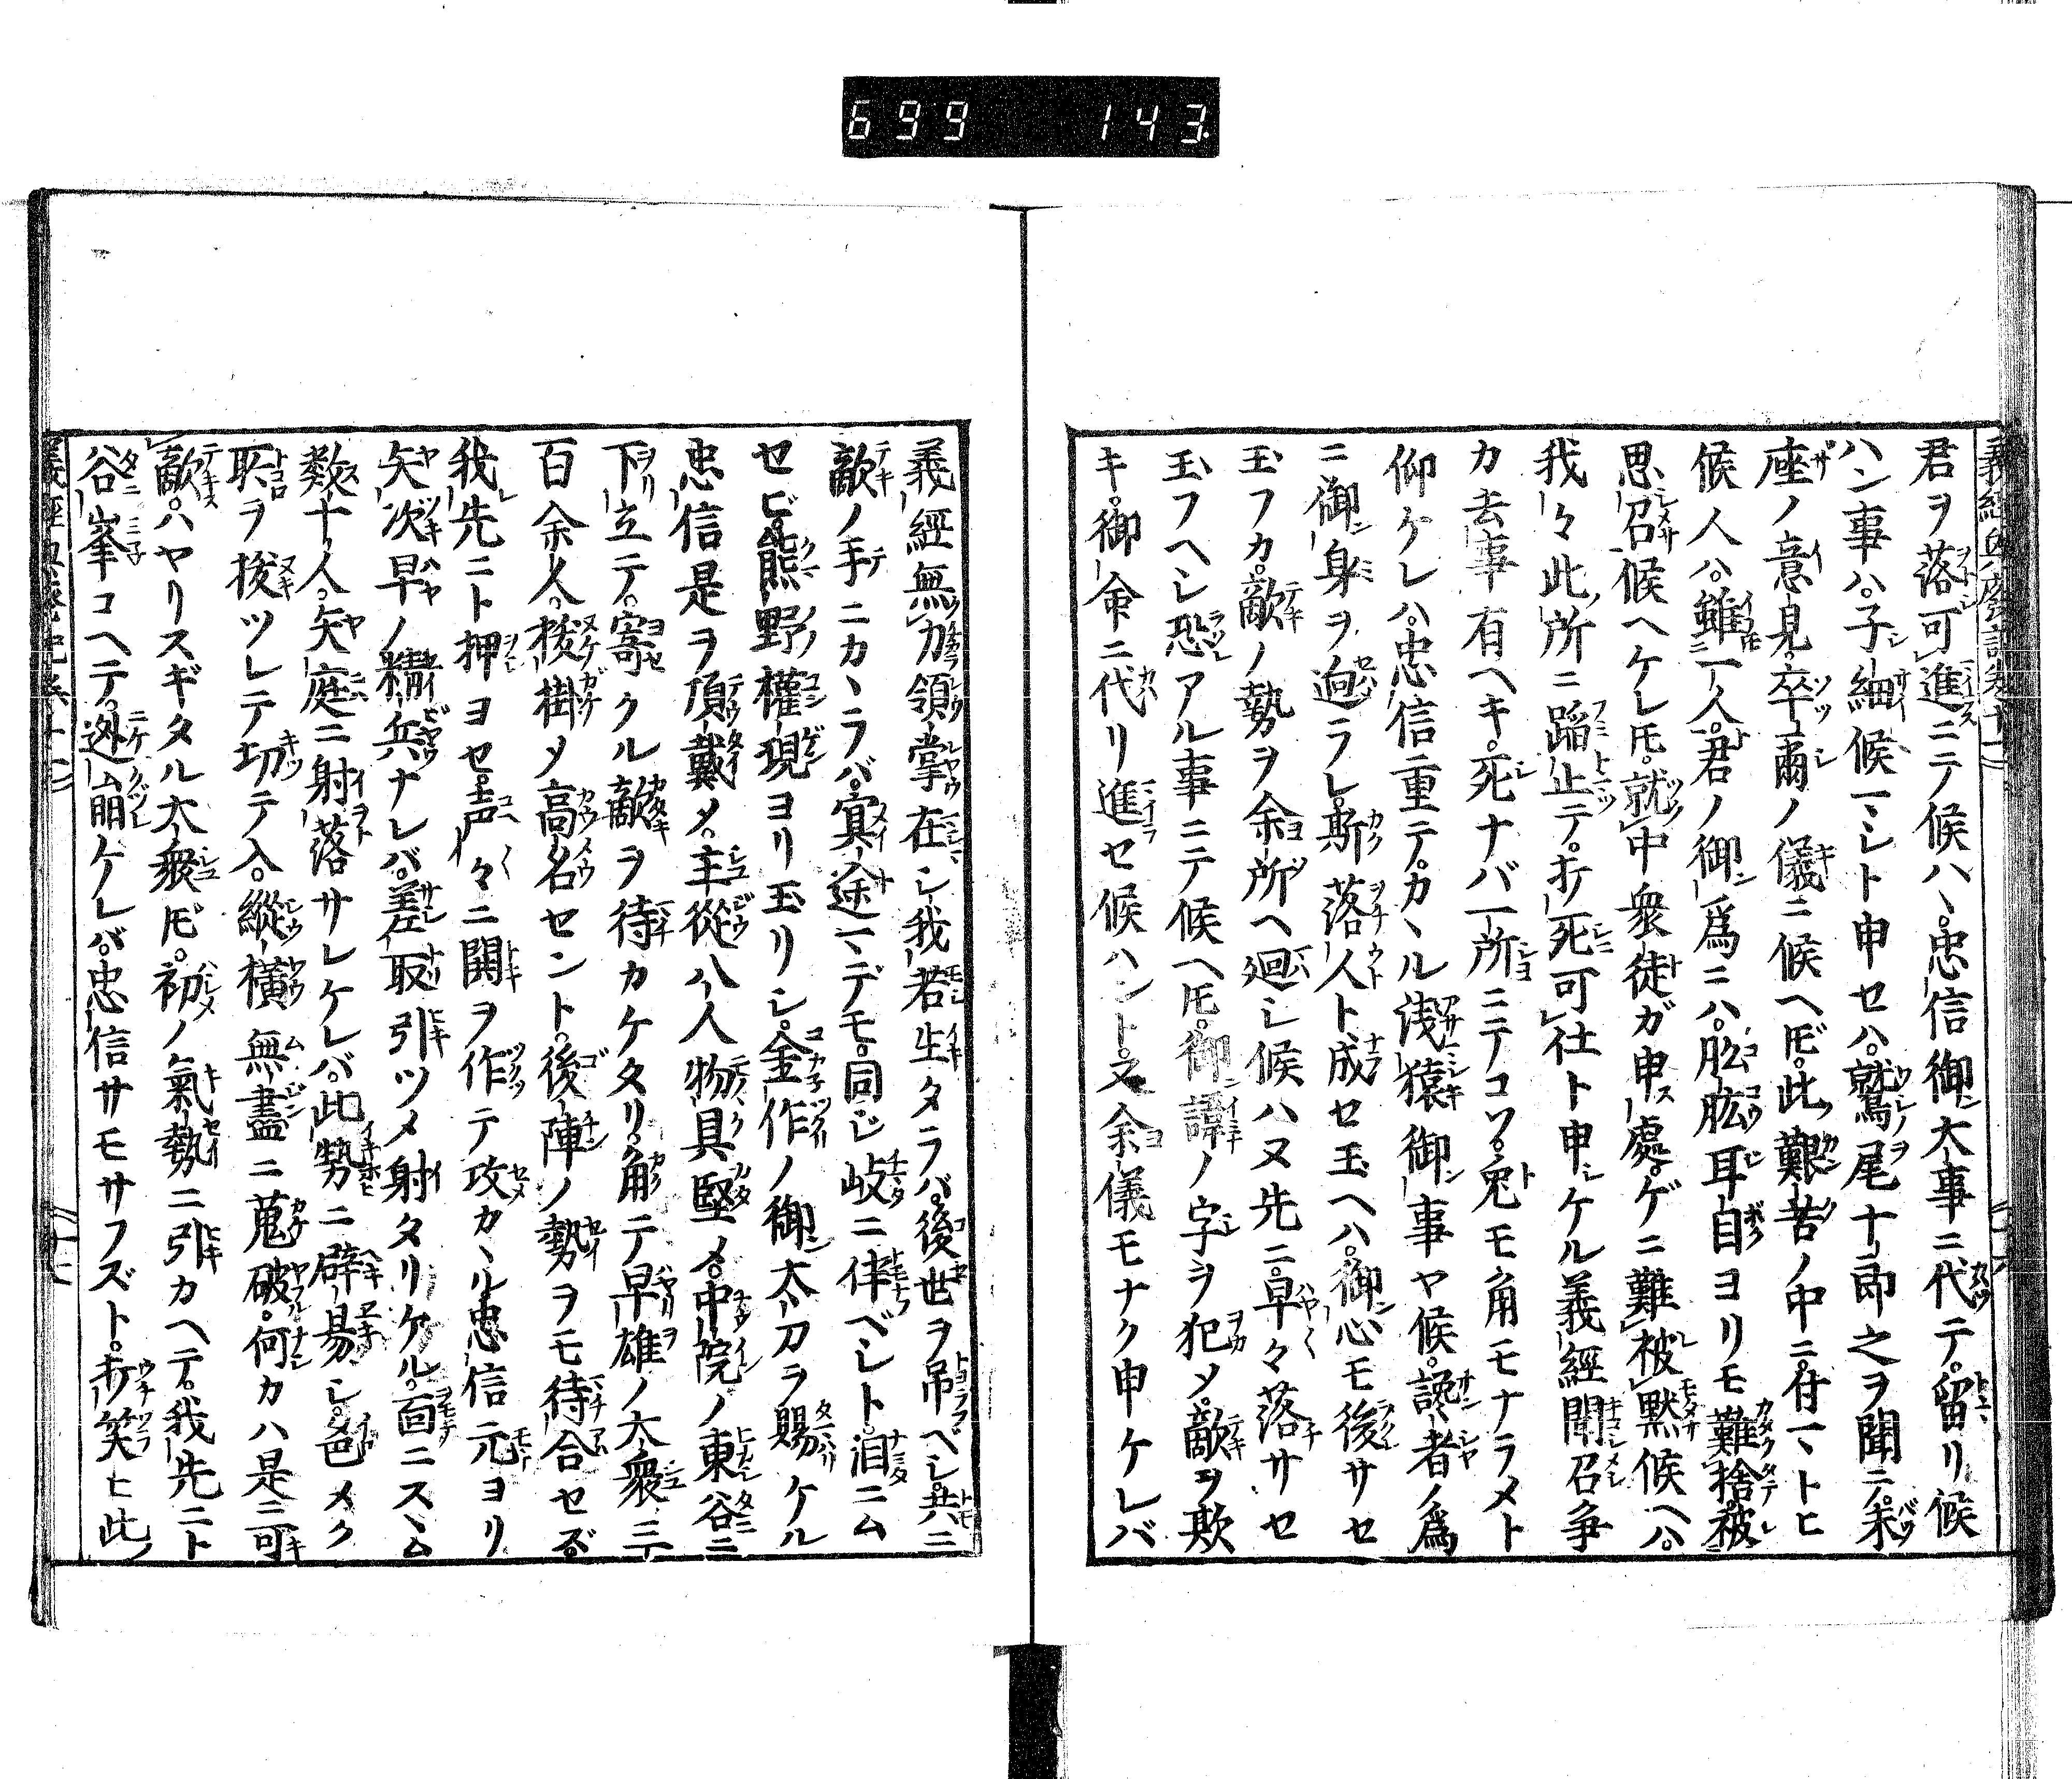 699 143
君ヲ落可進ニテ候ハヽ忠信御大事ニ代テ留リ候
ハン事ハ子細候マシト申セハ鷲尾十郎之ヲ聞ニ末
座ノ意見卒爾ノ儀ニ候ヘ𪜈此艱苦ノ中ニ付マトヒ
候人ハ雖一人君ノ御爲ニハ肱肱耳目ヨリモ難捨被
思召候ヘケレ𪜈就中衆徒ガ申處ゲニ難被黙候ヘハ
我々此所ニ蹈止テ打死可仕ト申ケル義經聞召争
カ去事有ヘキ死ナバ一所ニテコソ兎モ角モナラメト
仰ケレハ忠信重テカヽル浅猿御事ヤ候讒者ノ爲
ニ御身ヲ迫ラレ斯落人ト成セ玉ヘハ御心モ後サセ
玉フカ敵ノ勢ヲ余所ヘ廻シ候ハヌ先ニ早々落サセ
玉フヘシ恐アル事ニテ候ヘ𪜈御諱ノ字ヲ犯メ敵ヲ欺
キ御命ニ代リ進セ候ハント又余儀モナク申ケレバ
義經無力領掌在シ我若生タラバ後世ヲ吊ヘシ共ニ
敵ノ手ニカヽラバ冥途マデモ同シ岐ニ伴ベシト泪ニム
セビ熊野權現ヨリ玉リシ金作ノ御太刀ヲ賜ケル
忠信是ヲ頂戴メ主從八人物具堅メ中院ノ東谷ニ
下立テ寄クル敵ヲ待カケタリ角テ早雄ノ大衆三
百余人挍掛メ高名セント後陣ノ勢ヲモ待合セズ
我先ニト押ヨセ声々ニ閧ヲ作テ攻カヽル忠信元ヨリ
矢次早ノ精兵ナレバ差取引ツメ射タリケル面ニスヽム
数十人矢庭ニ射落サレケレバ此勢ニ辟易シ色メク
所ヲ挍ツレテ切テ入縱横無盡ニ蒐破何カハ是ニ可
敵ハヤリスギタル大衆𪜈初ノ氣勢ニ引カヘテ我先ニト
谷峯コヘテ迯崩ケレバ忠信サモサフズト打笑ヒ此